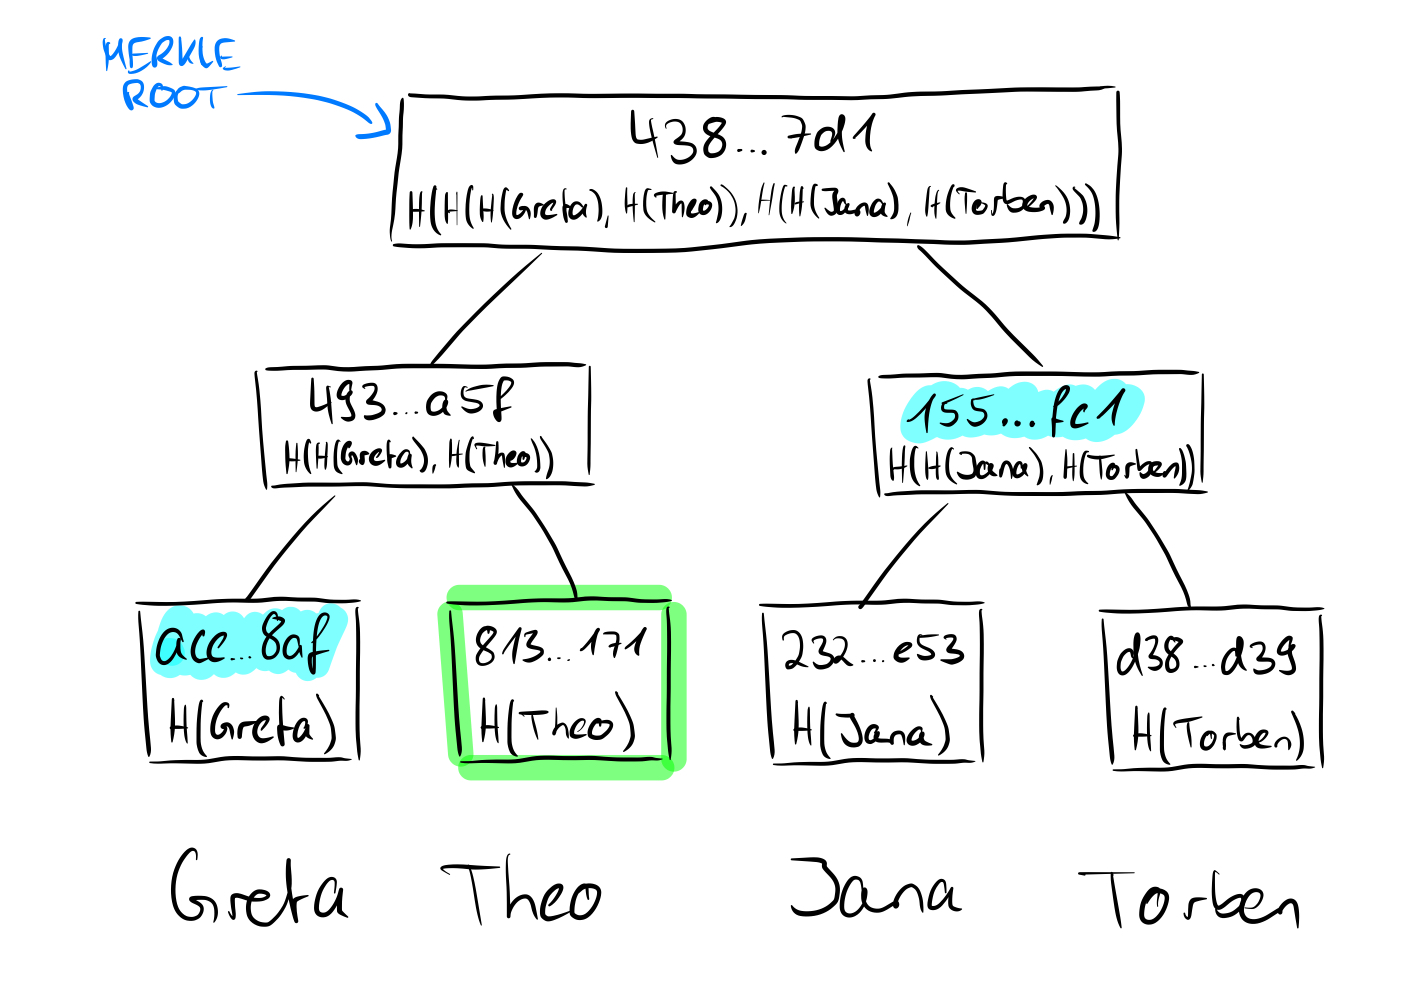 MERKLE
ROOT
438...7d1
H(H(H(Greta), H(Theo)), H(H(Jana), H(Torben)))
493...a5f
H(H(Greta), H(Theo))
155...fc1
H(H(Jana), H(Torben))
acc...8af
H(Greta)
813...171
H(Theo)
232...e53
H(Jana)
d38...d39
H(Torben)
Greta
Theo
Jana
Torben